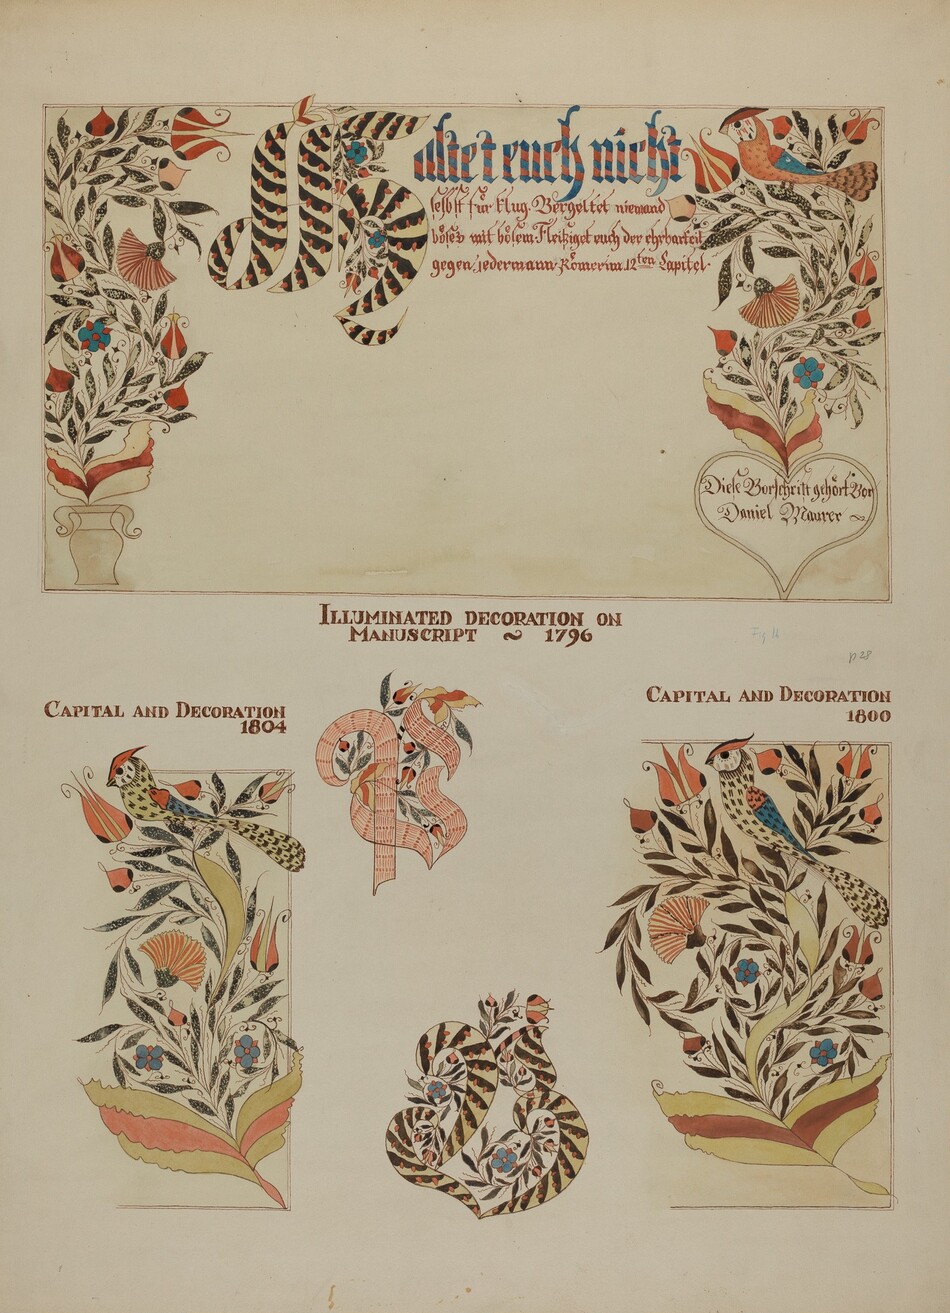 Haltet euch nicht
selbst für klug. Vergeltet niemand
böses mit bösem. Fleißiget euch der ehrbarkeit
gegen jedermann Römer im 12ten Capitel.
Diese Vorschrift gehört Vor
Daniel Maurer
ILLUMINATED DECORATION ON
MANUSCRIPT ~ 1796
Fig 16
p 28
CAPITAL AND DECORATION
1804
CAPITAL AND DECORATION
1800